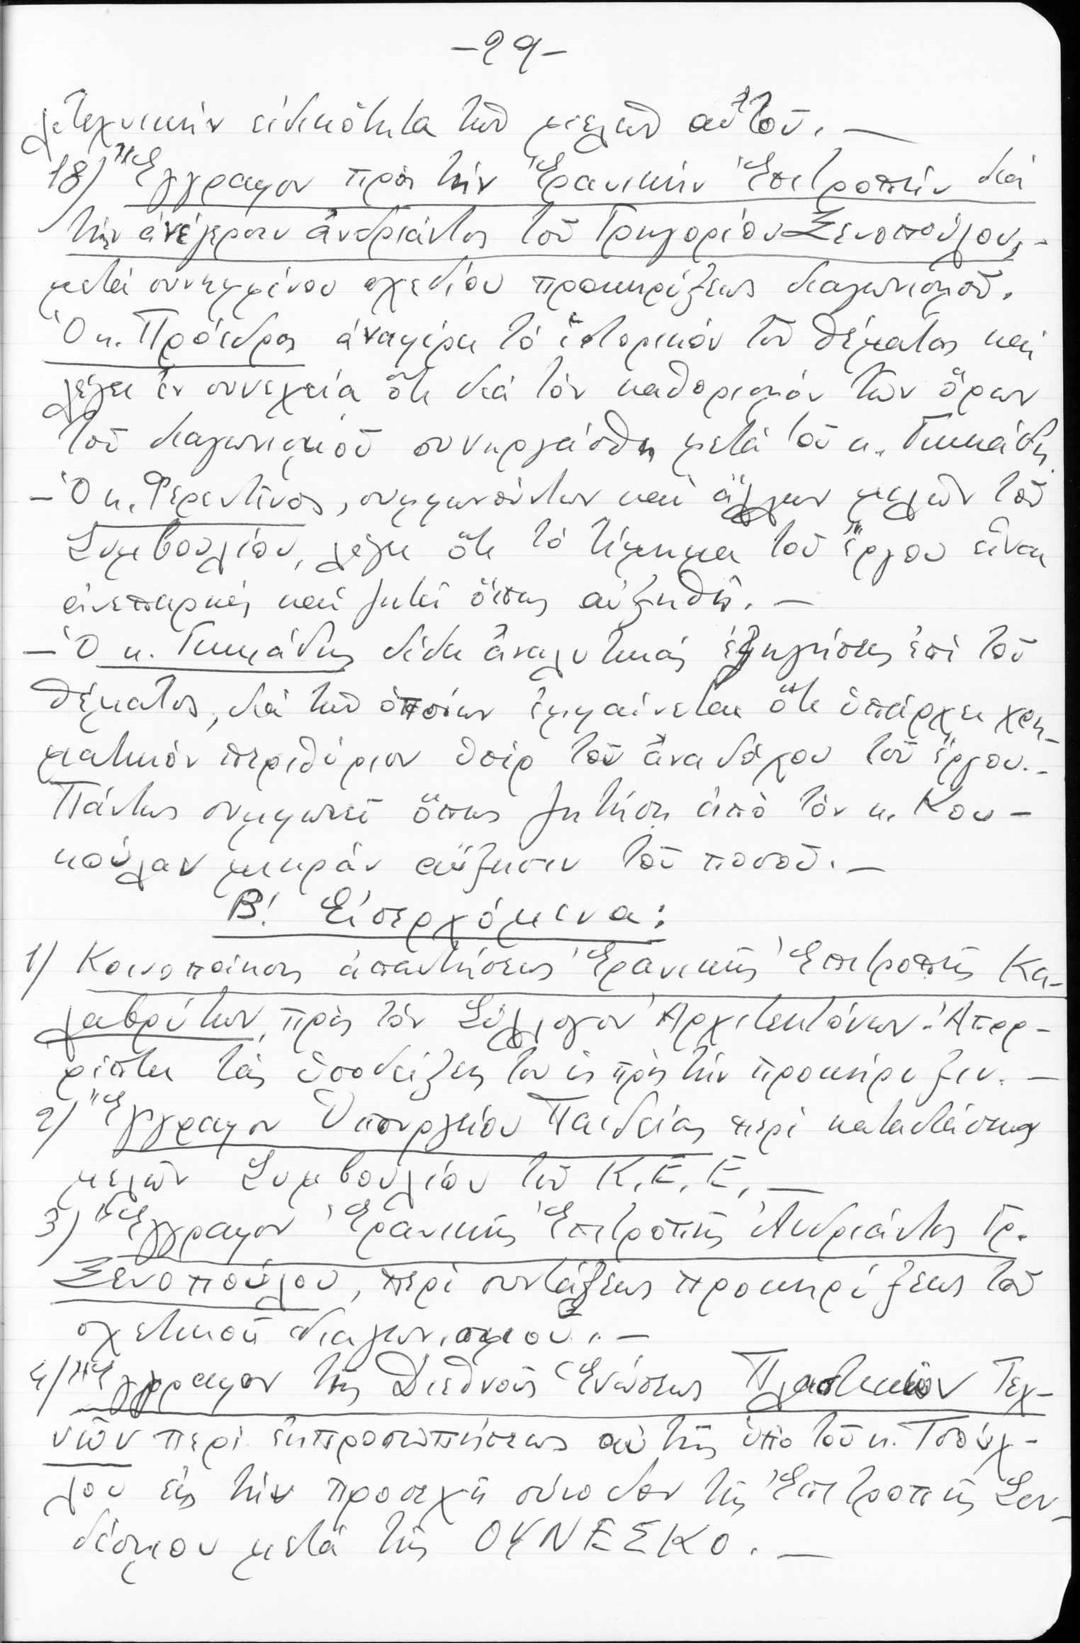 -29-
λιτεχνικήν εἰδικότητα τῶν μελῶν αὐτοῦ. —
18) Ἔγγραφον πρός τήν Ἐρανικήν Ἐπιτροπήν διά
τήν ἀνέγερσιν ἀνδριάντος τοῦ Γρηγορίου Ξενοπούλου,-
μετά συνημμένου σχεδίου προκηρύξεως διαγωνισμοῦ.
Ὁ κ. Πρόεδρος ἀναφέρει τό ἱστορικόν τοῦ θέματος καί
λέγει ἐν συνεχεία ὅτι διά τόν καθορισμόν τῶν ὅρων
τοῦ διαγωνισμοῦ συνηργάσθη μετά τοῦ κ.
- Ὁ κ. Φερεντῖνος, συμφωνούντων καί ἄλλων μελῶν τοῦ
Συμβουλίου, λέγει ὅτι τό τίμημα τοῦ ἔργου εἶναι
ἀνεπαρκές καί ζητεῖ ὅπως αὐξηθῆ. —
- Ὁ κ. δίδει ἀναλυτικάς ἐξηγήσεις ἐπί τοῦ
θέματος, διά τῶν ὁποίων ἐμφαίνεται ὅτι ὑπάρχει χρη-
ματικόν περιθώριον ὑπέρ τοῦ ἀναδόχου τοῦ ἔργου.-
Πάντως συμφωνεῖ ὅπως ζητήση ἀπό τόν κ. Κου-
κούλαν μικράν αὔξησιν τοῦ ποσοῦ. —
Β! Εἰσερχόμενα:
1) Κοινοποίησις ἀπαντήσεως Ἐρανικῆς Ἐπιτροπῆς Κα-
λαβρύτων, πρός τόν Σύλλογον Ἀρχιτεκτόνων.- Ἀπορ-
ρίπτει τάς ὑποδείξεις του ὡς πρός τήν προκήρυξιν. —
2) Ἔγγραφον Ὑπουργείου Παιδείας περί καταστάσεως
μελῶν Συμβουλίου τοῦ Κ.Ε.Ε. —
3) Ἔγγραφον Ἐρανικῆς Ἐπιτροπῆς Ἀνδριάντος Γρ.
Ξενοπούλου, περί συντάξεως προκηρύξεως τοῦ
σχετικοῦ διαγωνισμοῦ. —
4) Ἔγγραφον τῆς Διεθνοῦς Ἑνώσεως Πλαστικῶν Τεχ-
νῶν περί ἐκπροσωπήσεως αὐτῆς ὑπό τοῦ κ. Τσούχ-
λου εἰς τήν προσεχῆ σύνοδον τῆς Ἐπιτροπῆς Συν-
δέσμου μετά τῆς ΟΥΝΕΣΚΟ. —